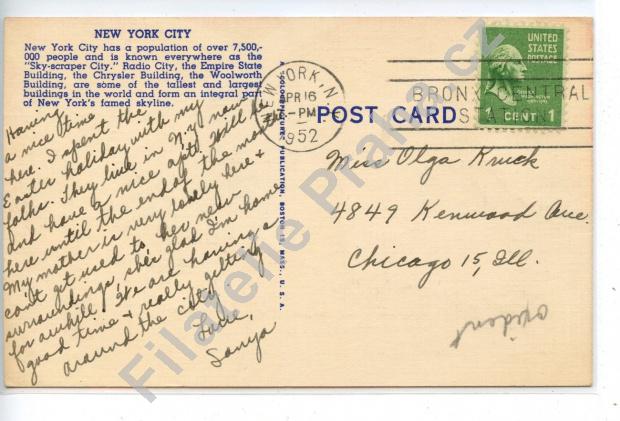 NEW YORK CITY
New York City has a population of over 7,500,-
000 people and is known everywhere as the
"Sky-scraper City." Radio City, the Empire State
Building, the Chrysler Building, the Woolworth
Building, are some of the tallest and largest
buildings in the world and form an integral part
of New York's famed skyline.
Having
a nice time
here. I spent the
Easter holiday with my
folks. They live in N.Y. now
and have a nice apt. Will be
here until the end of the month
My mother is very lonely here &
can't get used to her new
surroundings, she's glad I'm home
for awhile. We are having a
good time & really getting
around the city.
Love,
Sonya
A "COLOURPICTURE" PUBLICATION, BOSTON 15, MASS., U. S. A.
POST CARD
NEW YORK, N.
APR 16
-PM
1952
BRONX CENTRAL
STATION
UNITED
STATES
POSTAGE
1 CENT 1
Miss Olga Kruck
4849 Kenwood Ave.
Chicago 15, Ill.
Filatelie Praha cz